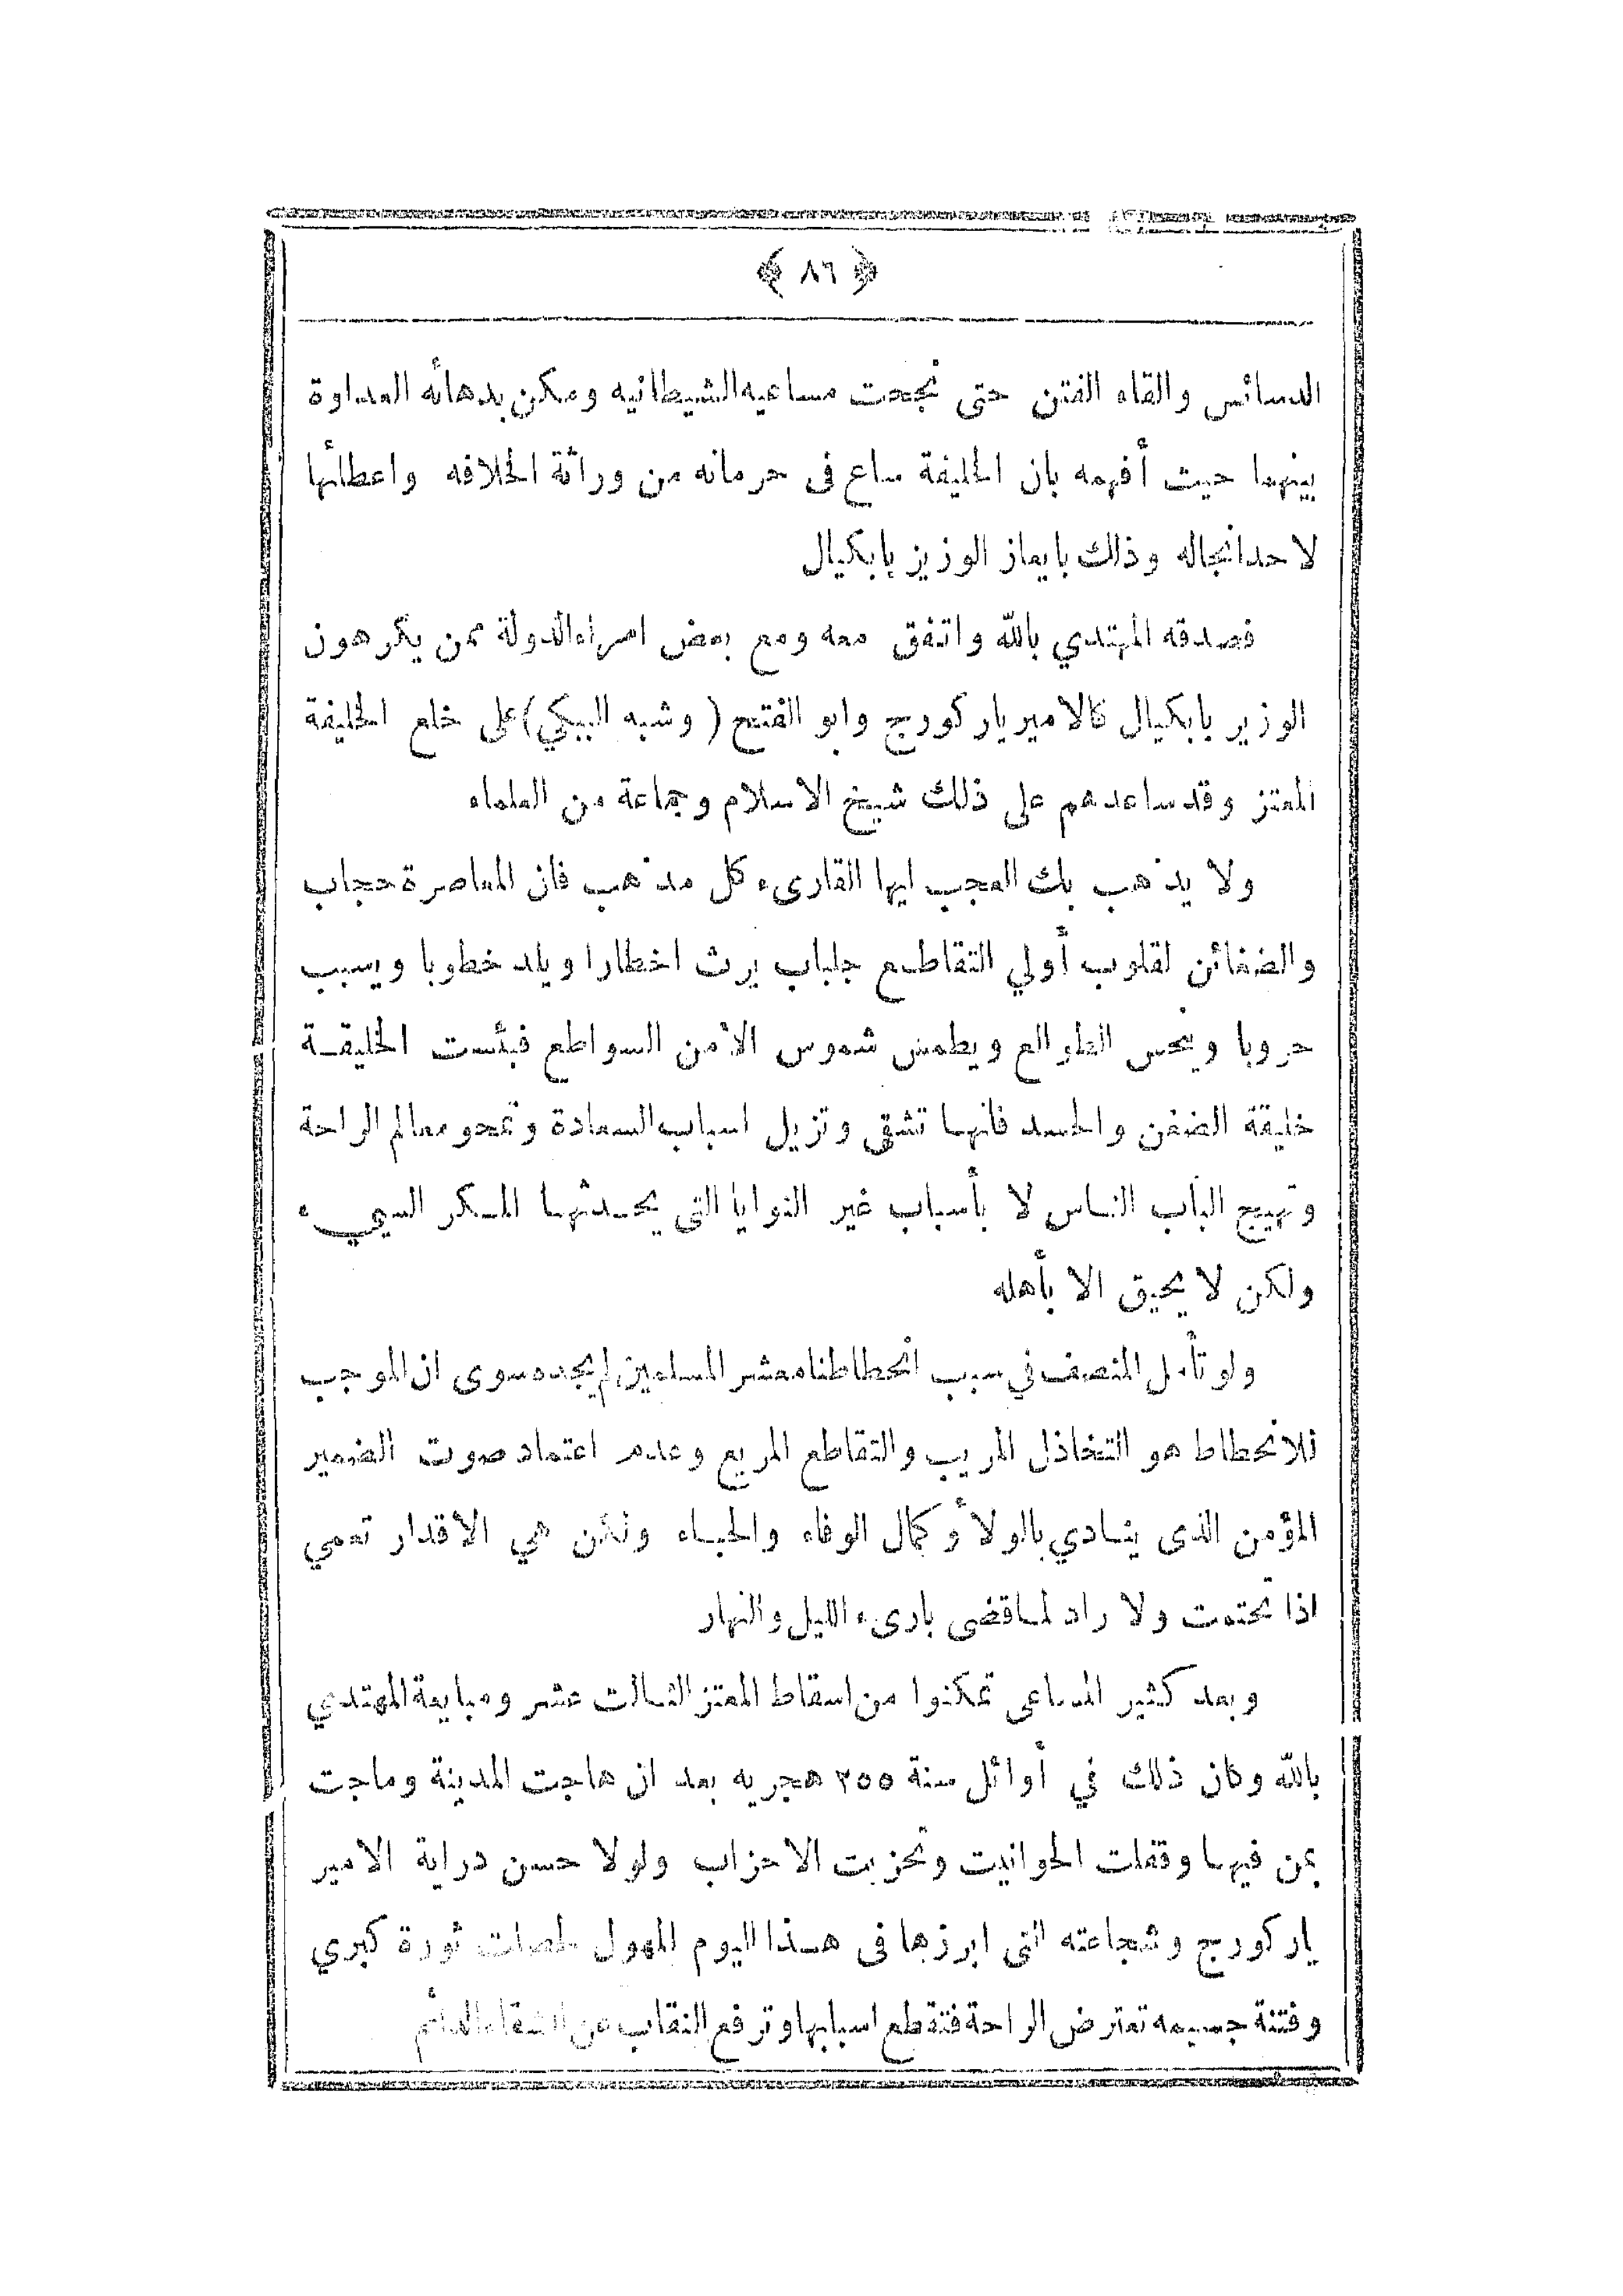 ﴿ ٨٦ ﴾
الدسائس والقاء الفتن حتى نجحت مساعيه الشيطانيه ومكن بدهائه العداوة
بينهما حيت أفهمه بان الخليفة ساع فى حرمانه من وراثة الخلافه واعطائها
لاحدانجاله وذلك بايعاز الوزيز بابكيال
فصدقه المهتدي بالله واتفق معه ومع بعض امراء الدولة ممن يكرهون
الوزير بابكيال كالامير ياركورج وابو الفتح ( وشبه البيكي ) على خلع الخليفة
المعتز وقد ساعدهم على ذلك شيخ الاسلام وجماعة من العلماء
ولا يذهب بك العجب ايها القارىء كل مذهب فان المعاصرة حجاب
والضغائن لقلوب أولي التقاطع جلباب يرث اخطارا ويلد خطوبا ويسبب
حروبا وينحس الطوالع ويطمس شموس الأمن السواطع فبئست الخليقة
خليقة الضغن والحسد فانها تشقى وتزيل اسباب السعادة وتمحو معالم الراحة
وتهيج الباب الناس لا بأسباب غير النوايا التى يحدثها المكر السيىء
ولكن لا يحيق الا بأهله
ولو تأمل المنصف في سبب انحطاطنا معشر المسلمين لم يجده سوى ان الموجب
للانحطاط هو التخاذل المريب والتقاطع المريع وعدم اعتماد صوت الضمير
المؤمن الذى ينادي بالولأ وكمال الوفاء والحباء ولكن هي الأقدار تعمي
اذا تحتمت ولا راد لما قضى بارىء الليل والنهار
وبعد كثير المساعى تمكنوا من اسقاط المعتز الثالث عشر ومبايعة المهتدي
بالله وكان ذلك في أوائل سنة ٢٥٥ هجريه بعد ان هاجت المدينة وماجت
بمن فيها وقفلت الحوانيت وتحزبت الاحزاب ولولا حسن دراية الامير
ياركورج وشجاعته التى ابرزها فى هذا اليوم المهول لحصلت ثورة كبري
وفتنة جسيمه تعترض الراحة فتقطع اسبابها وترفع النقاب عن الشقاء الدائم